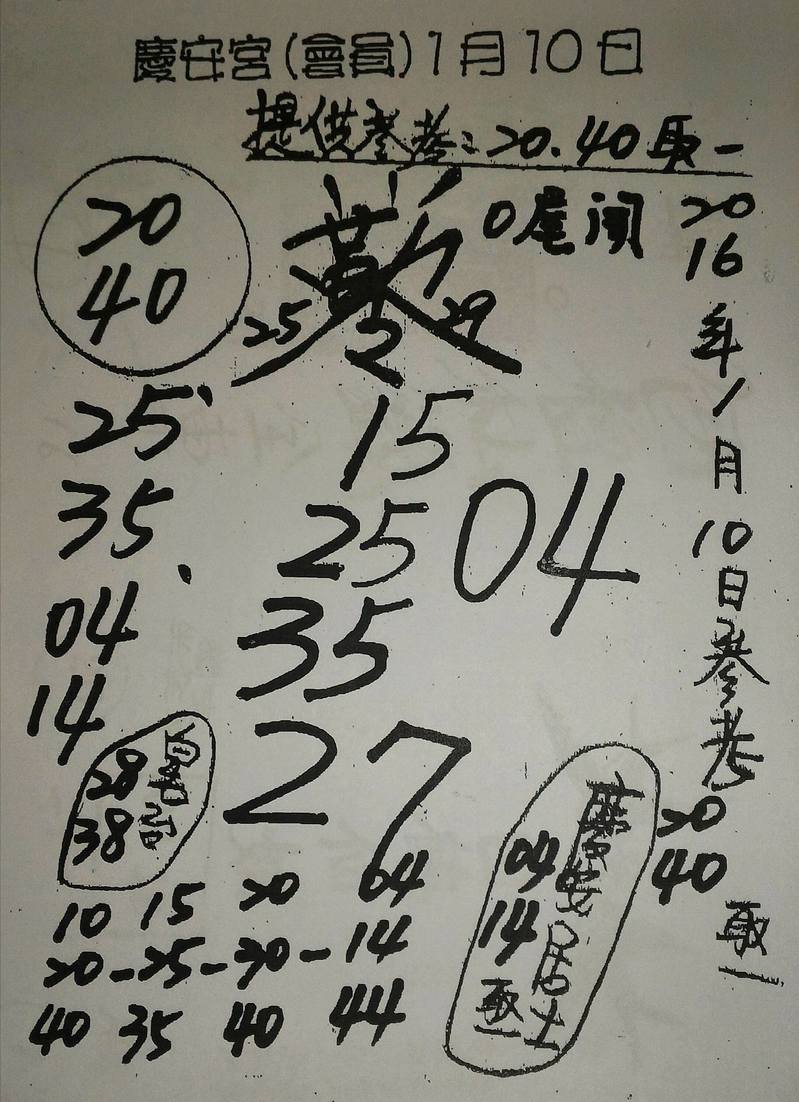 慶安宮(會員)1月10日
提供參考:20.40取一
20
40
0尾開
25 2 29
2016年1月10日參考
20
40
取一
25
35
04
14
15
25
35
04
27
28
38
慶安居士
04
14
取一
10 15 20 04
20-25-30-14
40 35 40 44